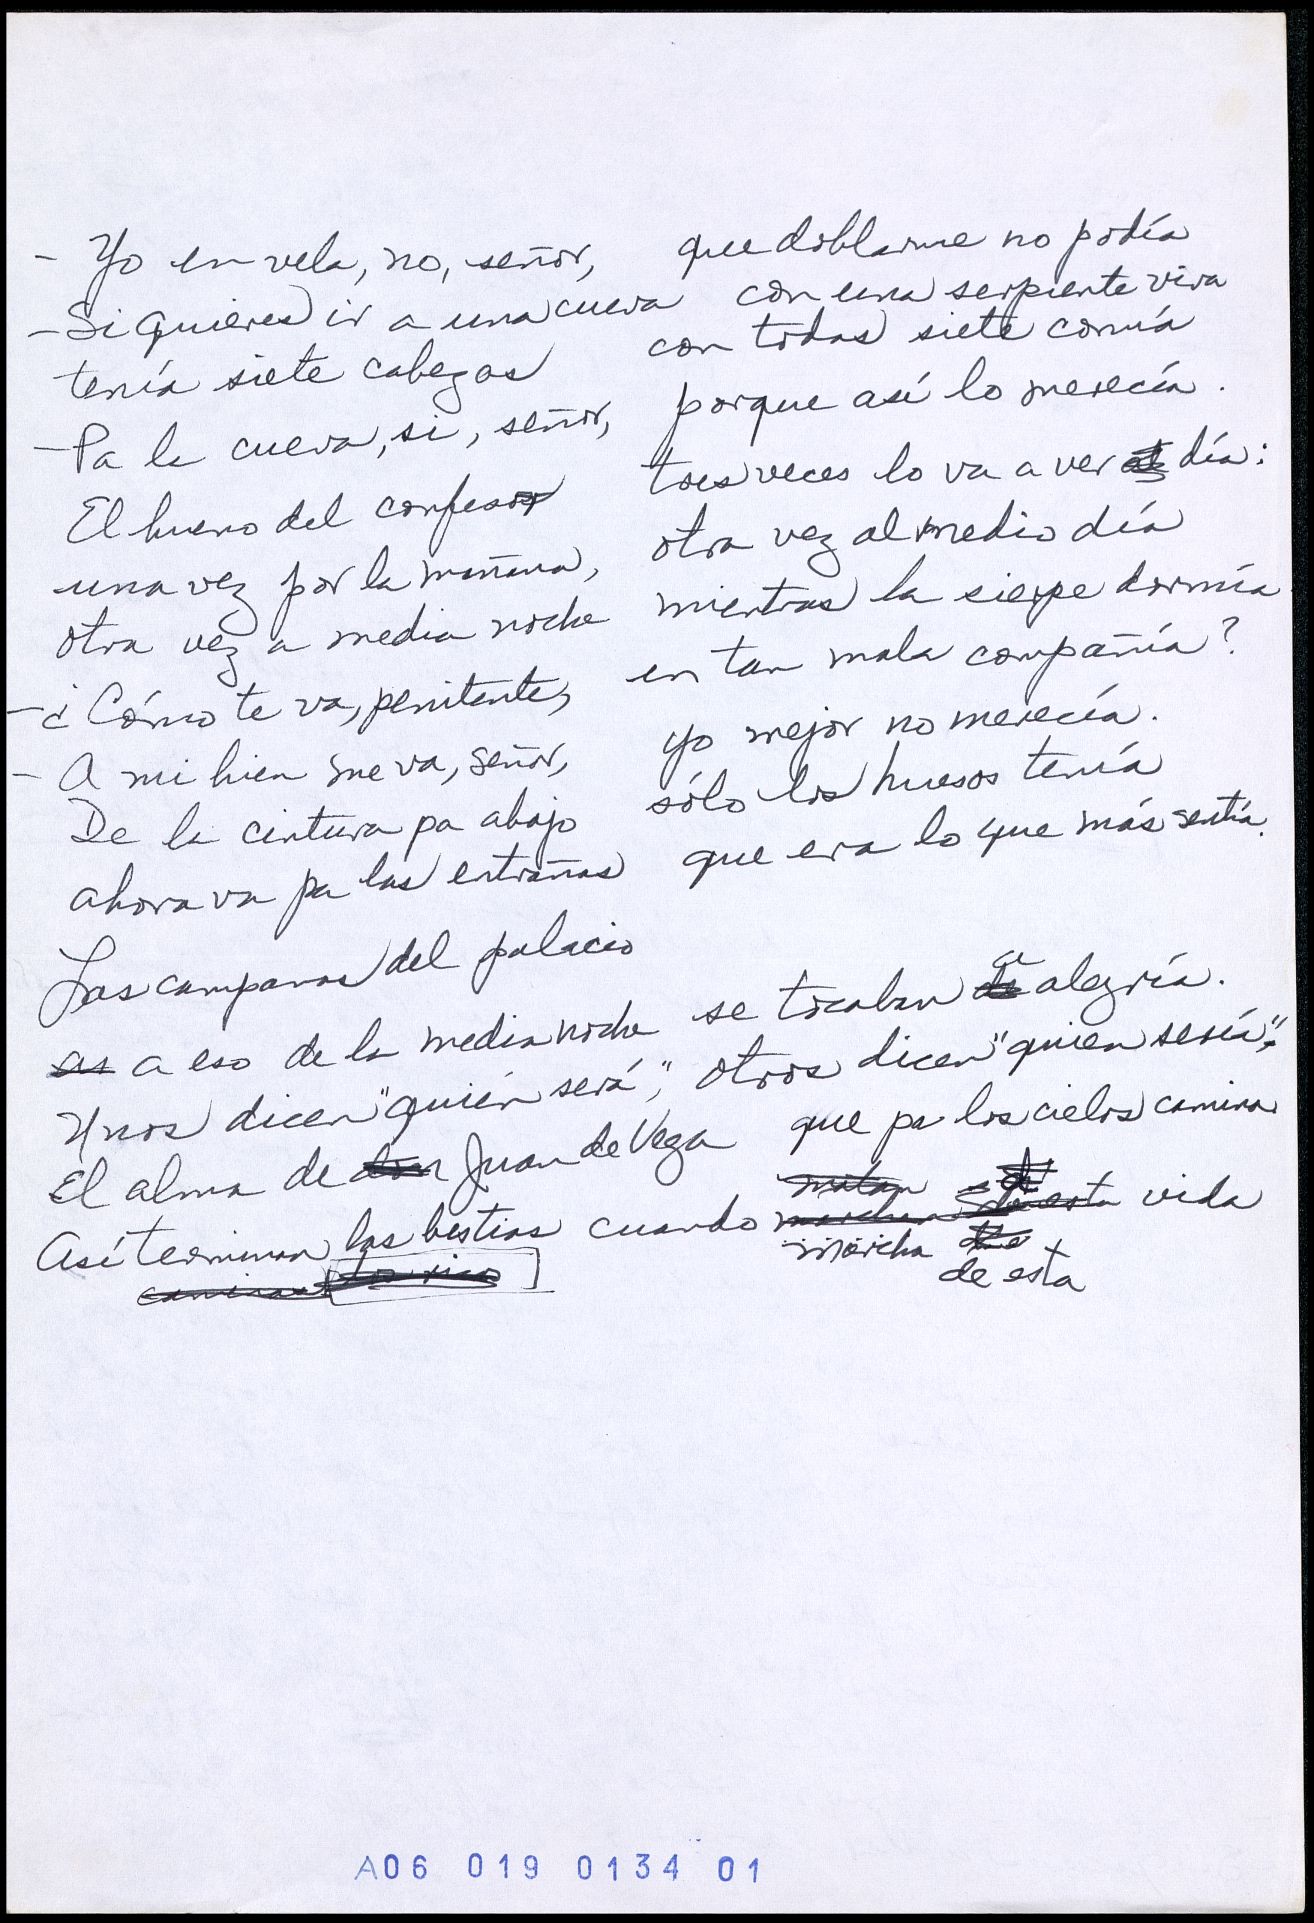 - Yo en vela, no, señor, que doblarme no podía
- Si quieres ir a una cueva con una serpiente viva
tenía siete cabezas con todas siete comía
- Pa la cueva, si, señor, porque así lo merecía.
El bueno del confesor tres veces lo va a ver al día:
una vez por la mañana, otra vez al medio día
otra vez a media noche mientras la sierpe dormía
- ¿Cómo te va, penitente, en tan mala compañía?
- A mi bien me va, señor, yo mejor no merecía.
De la cintura pa abajo sólo los huesos tenía
ahora va pa las entrañas que era lo que más sentía.
Las campanas del palacio
as a eso de la media noche se tocaban de alegría.
Unos dicen "quién será", otros dicen "quien sería",
El alma de don Juan de Vega que pa los cielos camina
Así terminan las bestias cuando marchan de esta vida
marcha
de esta
A06 019 0134 01